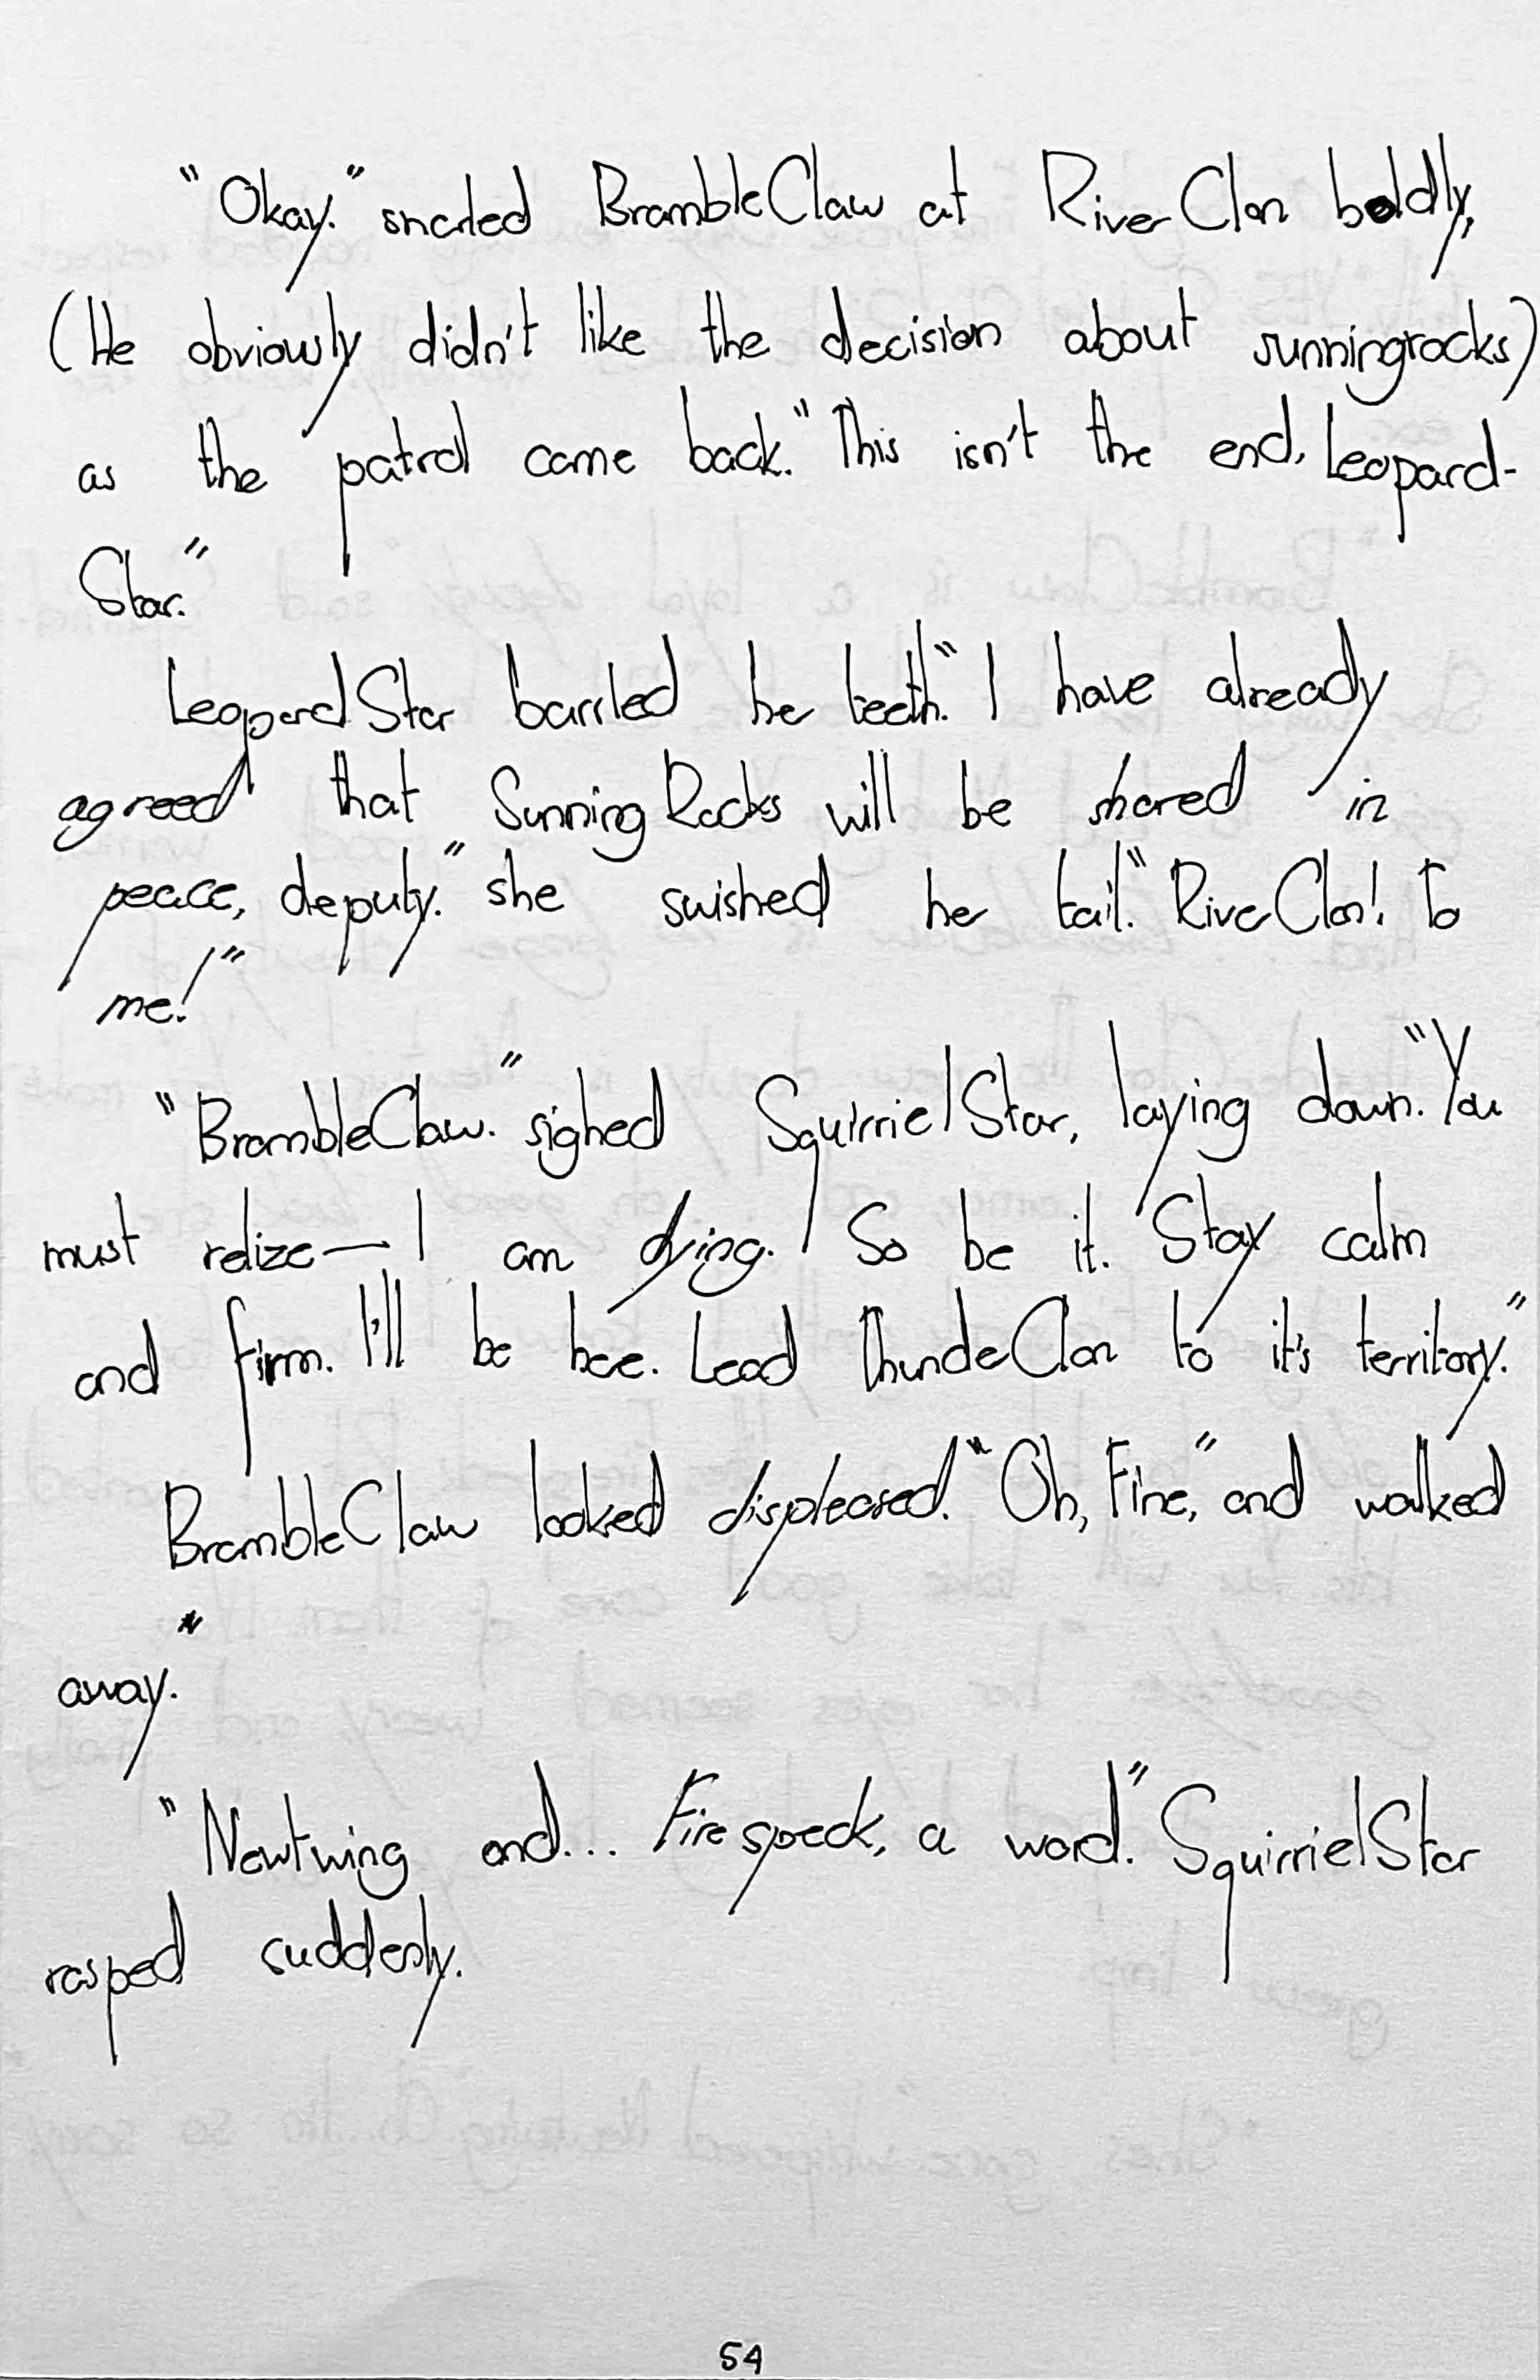 "Okay." snarled BrambleClaw at RiverClan boldly,
(He obviously didn't like the decision about sunningrocks)
as the patrol came back. "This isn't the end, Leopard-
Star."
LeopardStar barrled her teeth. "I have already
agreed that SunningRocks will be shared in
peace, deputy." she swished her tail. "RiverClan! To
me!"
"BrambleClaw." sighed SquirrielStar, laying down. "You
must relize— I am dying. So be it. Stay calm
and firm. I'll be here. Lead ThunderClan to it's territory."
BrambleClaw looked displeased. "Oh, Fine," and walked
away.
"Newtwing and... Firespeck, a word." SquirrielStar
rasped suddenly.
54